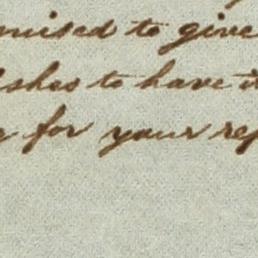 mised to give
shes to have i
for your rep